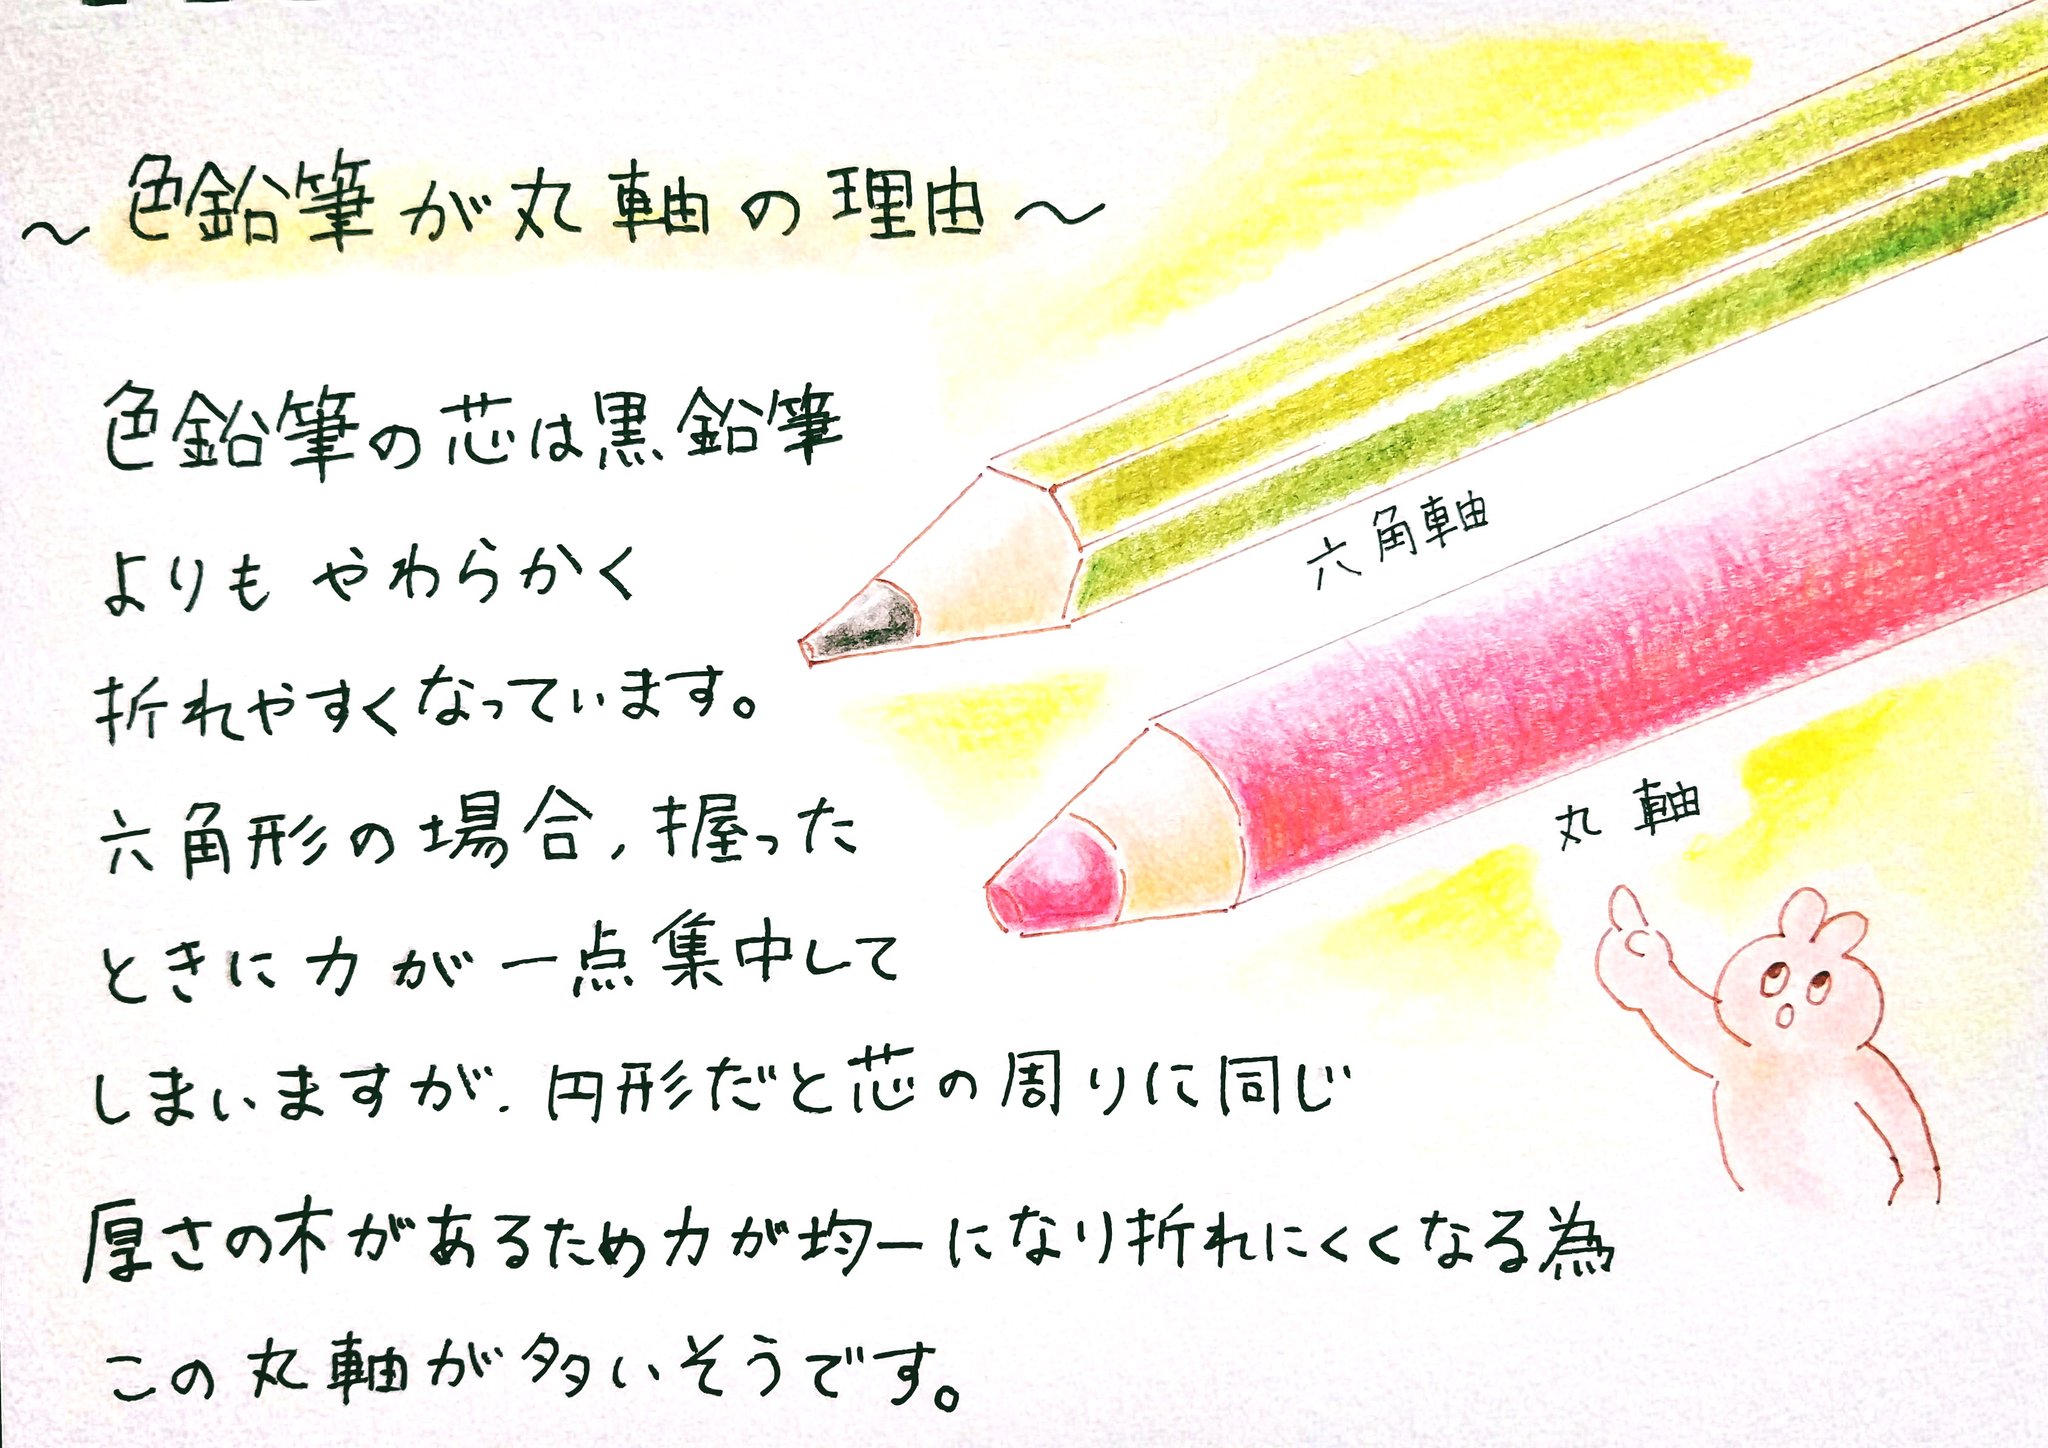 ～色鉛筆が丸軸の理由～
色鉛筆の芯は黒鉛筆
よりもやわらかく
折れやすくなっています。
六角形の場合、握った
ときに力が一点集中して
しまいますが、円形だと芯の周りに同じ
厚さの木があるため力が均一になり折れにくくなる為
この丸軸が多いそうです。
六角軸
丸軸